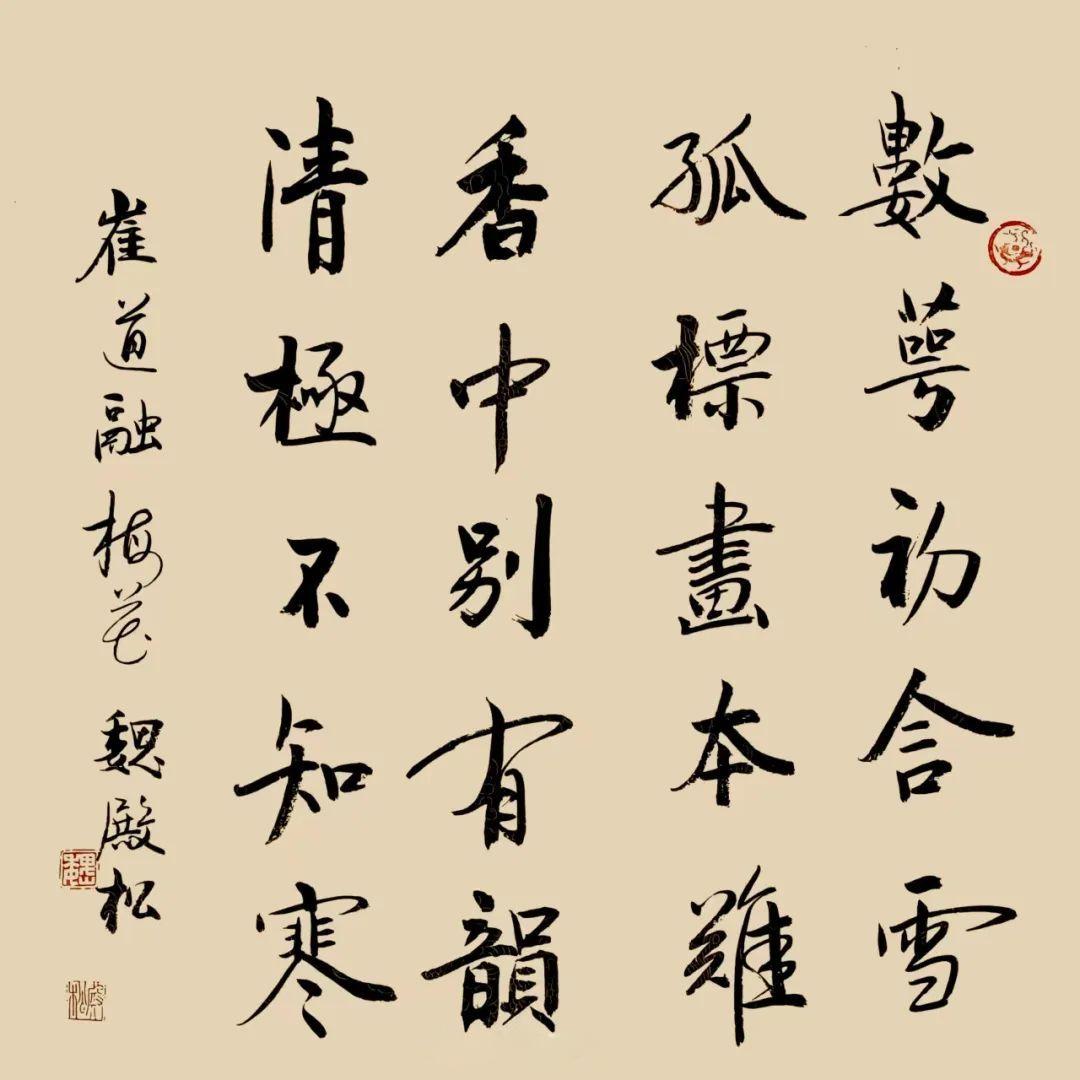 數萼初含雪
孤標畫本難
香中别有韻
清極不知寒
崔道融梅花 魏殿松